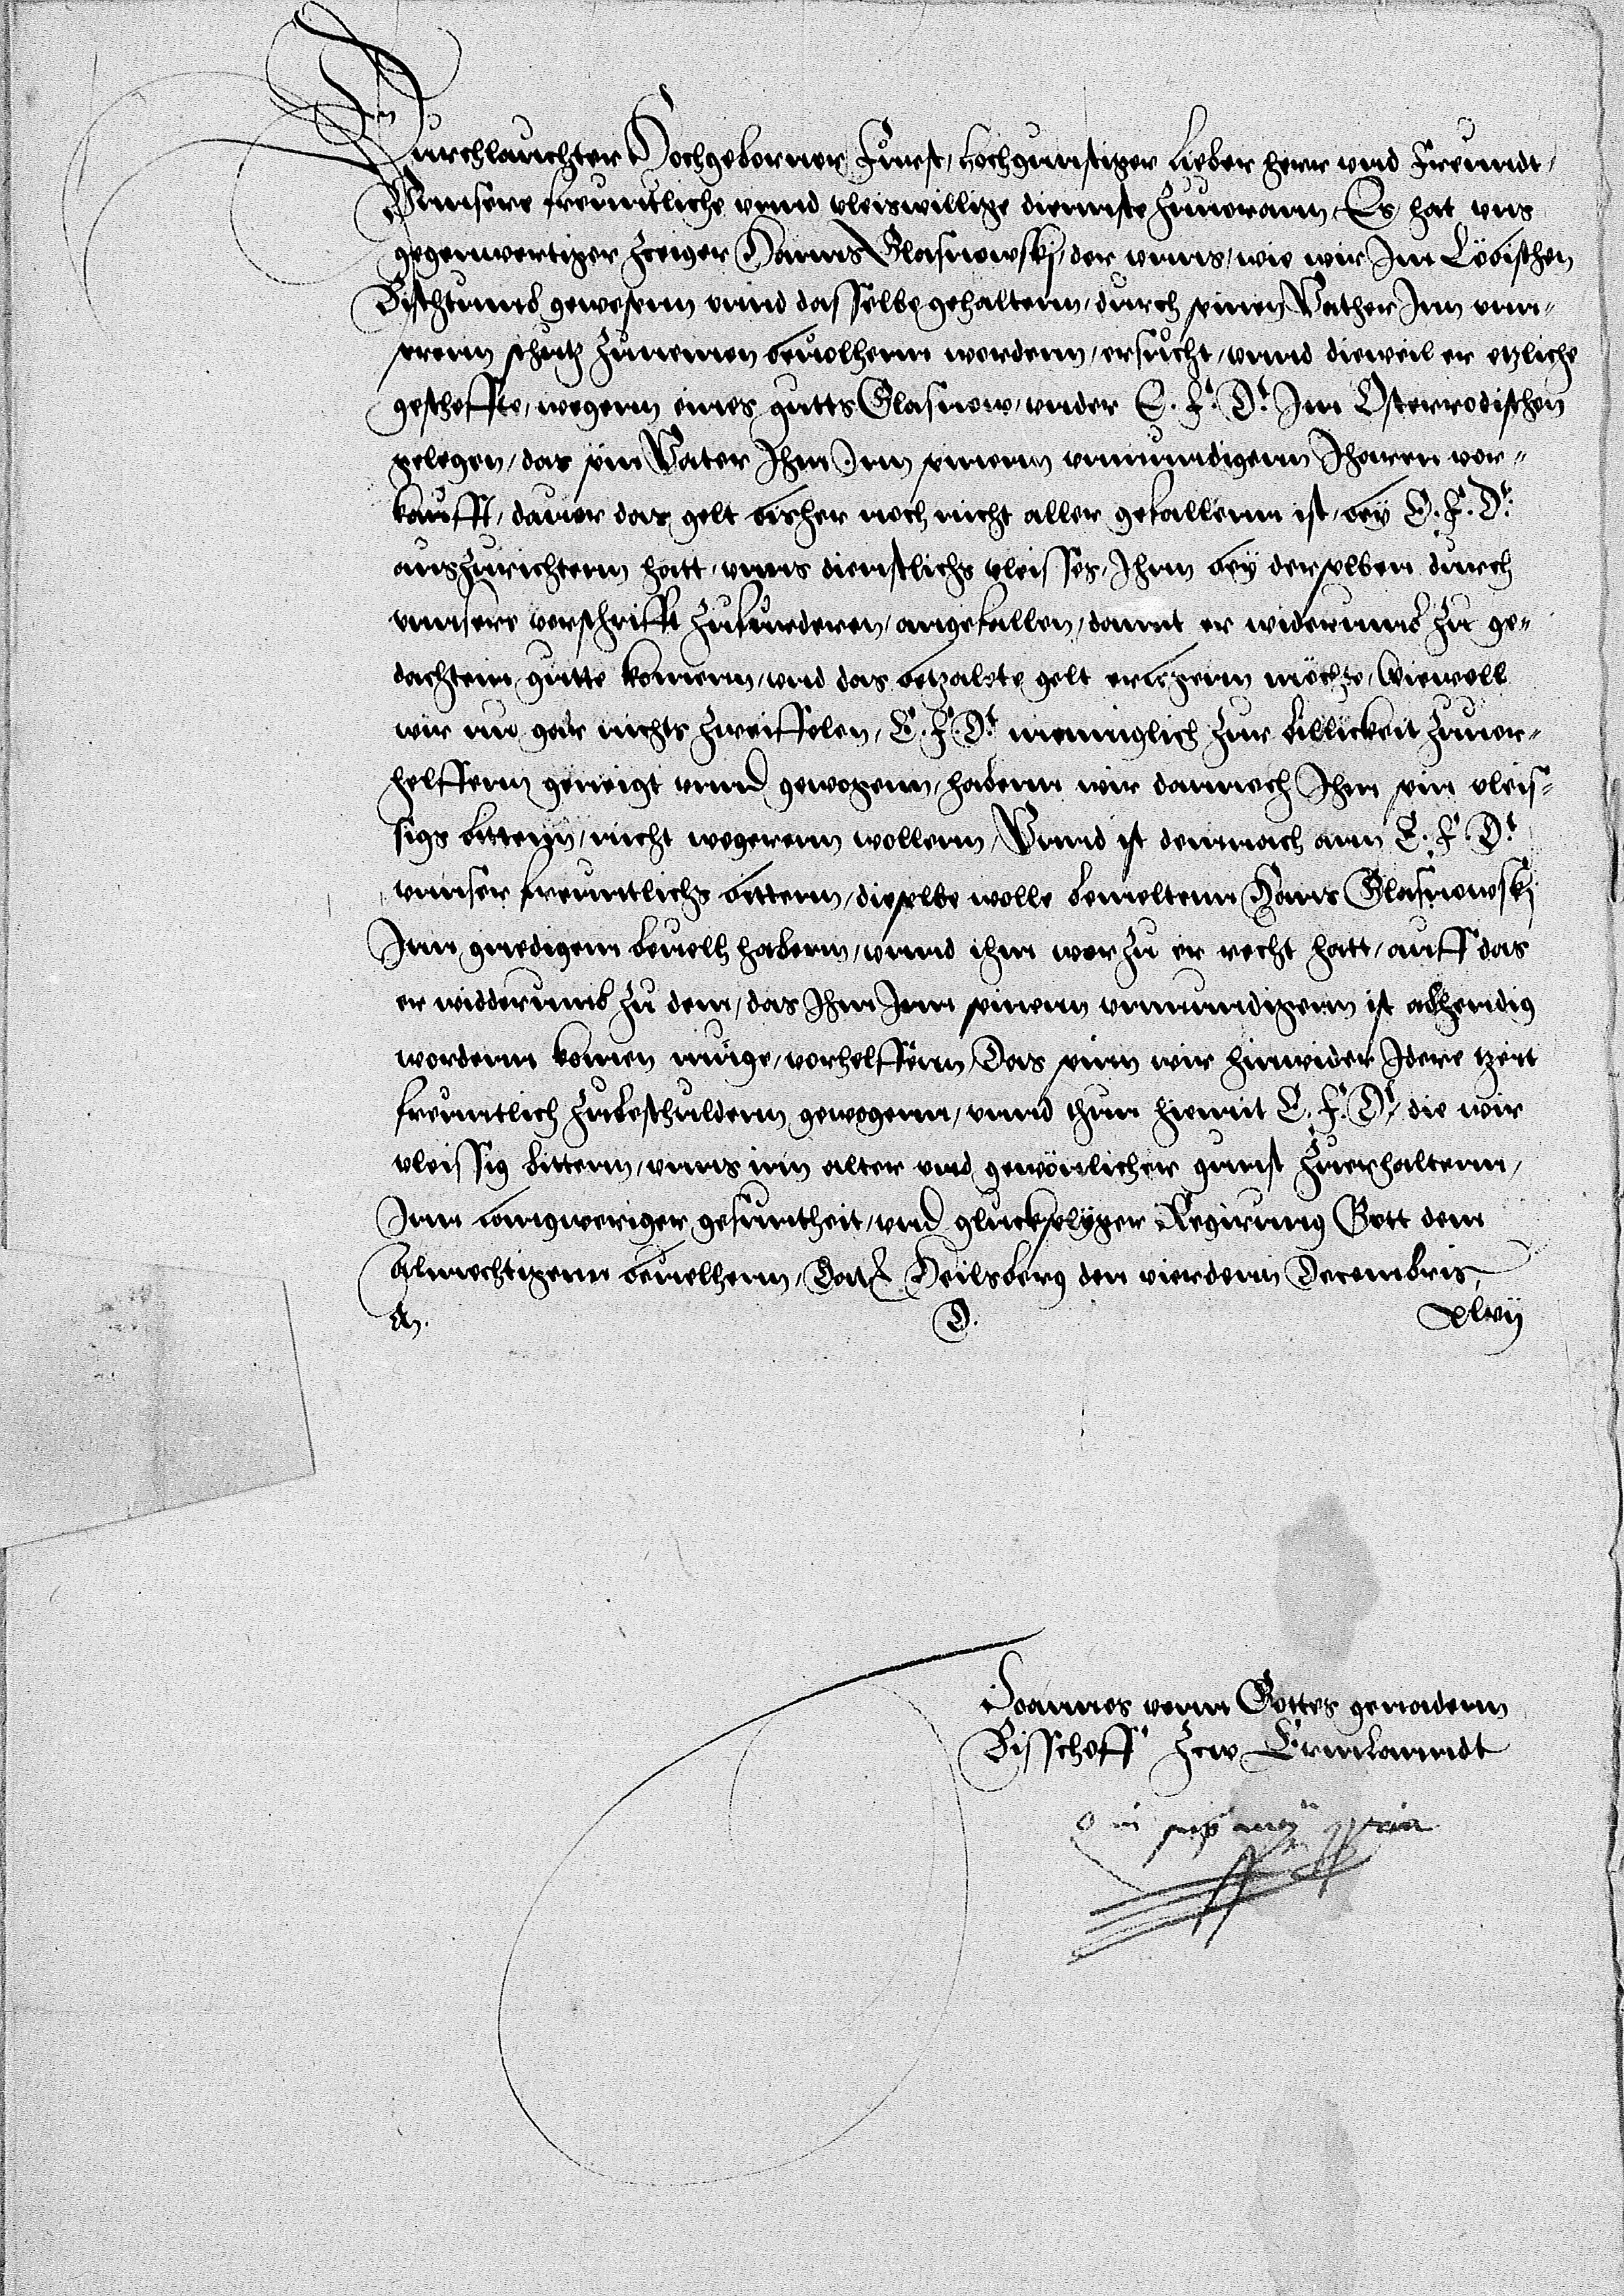 Durchlauchter Hochgeborner Furst, hochgunstiger lieber herr vnd freundt,
Vnnsere freuntliche vnnd vleiswillige diennste zuuorann, Es hat vns
gegenwertiger zeiger Hanns Glasnowskj, der vnns, wie wir Im Löbischen
Bischtumb gewesenn vnnd dasselbe gehaltenn, durch seinen Vather Inn vnn-
serenn schutz zunemen beuolhenn wordenn, ersucht, vnnd dieweil er etzliche
gescheffte, wegenn eines gutts Glasnow, vnder E. F. Dt. Im Osterrodischen
gelegen, das sein Vater Ihm Inn seinenn vnmundigenn Iharen vor-
kaufft, dauor das gelt bisher noch nicht aller gefallenn ist, bey E. F. Dt.
auszurichtenn hatt, vnns dienstlichs vleisses, Ihnn bey derselben durch
vnnsere verschrifft zufurderen, angefallen, damit er widerumb zu ge-
dachtem gutte komenn, vnd das betzalete gelt erlegenn möchte, Wiewoll
wir nu gar nichts zweiffelen, E. F. Dt. menniglich zur billickeit zuuor-
helffenn geneigt vnnd gewogenn, habenn wir dannoch Ihm sein vleis-
sigs bittenn, nicht wegerenn wollenn, Vnnd ist demnach ann E. F. Dt.
vnnser freuntlichs bittenn, dieselbe wolle bemeltenn Hans Glasnowskj
Inn gnedigem beuelh habenn, vnnd ihm worzu er recht hatt, auff das
er widderumb zu dem, das Ihm Inn seinenn vnmundigenn ist abhendig
wordenn komen muge, vorhelffenn, Das sein wir hinwider Idere tzeit
freuntlich zubeschuldenn gewogenn, vnnd thun hiemit E. F. Dt. die wir
vleissig bittenn, vnns inn alter vnd gewönlicher gunst zuerhaltenn,
Inn langweriger gesuntheit, vnd gluckseliger Regirung Gott dem
Almechtigenn beuelhenn, Dat. Heilsberg den vierdenn Decembris,
A. D. xlvij
Joannes vonn Gottes genadenn
Bisschoff zcw Ermlanndt